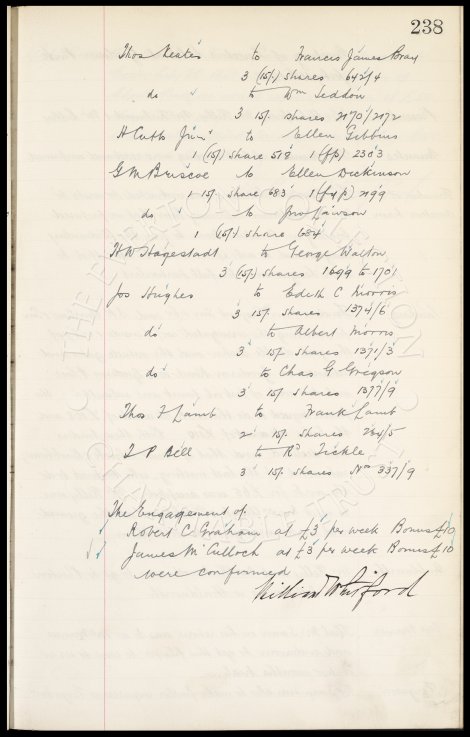 238
Thos Keates to Francis James Bray
3 (15/-) shares 642/4
do to Wm Seddon
3 15/- shares 2170/2172
A Cutts Junr to Ellen Gibbins
1 (15/-) share 518 1 (fp) 2303
G M Briscoe to Ellen Dickinson
1 15/- share 683 1 (fyp) 2199
do to Jno Lawson
1 (15/-) share 684
H W Hagestadt to George Walton
3 (15/-) shares 1699 to 1701
Jos Hughes to Edith C Morris
3 15/- shares 1374/6
do to Albert Morris
3 15/- shares 1371/3
do to Chas G Gregson
3 15/- shares 1377/9
Thos F Lamb to Frank Lamb
2 15/- shares 234/5
T P Bell to Rd Sickle
3 15/- shares Nos 337/9
The Engagement of
Robert C Graham at £3 per week Bonus £10
James McCulloch at £3 per week Bonus £10
were confirmed
William Whitford
THE EVERTON COLLECTION